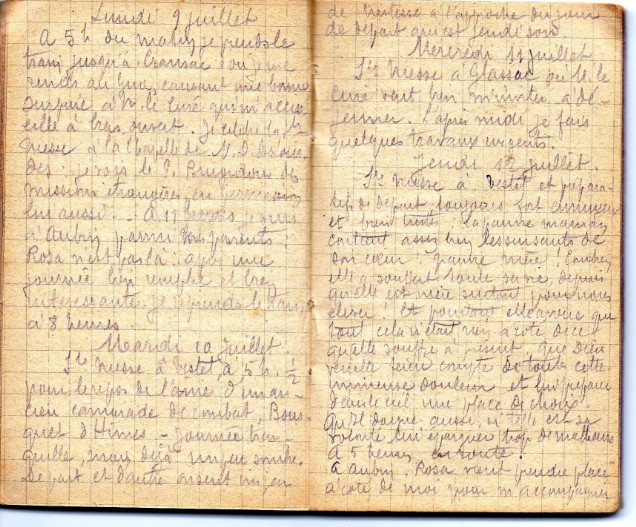 Lundi 9 juillet
A 5 h du matin je prends le
train jusqu'à Cransac d'où je me
rends au Gua, causant une bonne
surprise à M. le curé qui m'accu
eille à bras ouvert. Je célèbre la Ste
messe à la chapelle de N. D.
des : je vois le P. des
missions étrangères, en permission
lui aussi. - A 11 heures je suis
à Aubin parmi mes parents.
Rosa n'est pas là : après une
journée bien remplie et très
intéressante, je reprends le train
à 8 heures
Mardi 10 juillet
Ste messe à Testet à 5 h 1/2
pour le repos de l'âme d'un an-
cien camarade de combat, Bous-
quet d'Hymes - Journée tran-
quille, mais déjà un peu sombre.
De part et d'autre on sent un peu
de tristesse à l'approche du jour
de départ qui est jeudi soir
Mercredi 11 juillet
Ste Messe à Glassac où M. le
curé veut bien m'inviter à dé-
jeuner. L'après midi je fais
quelques travaux urgents.
Jeudi 12 juillet.
Ste Messe à Testet et prépara-
tifs de départ toujours fort ennuyeux
et bien triste. La pauvre maman
contient assez bien les
son cœur. Pauvre mère !
elle a souffert toute sa vie, depuis
qu'elle est mère surtout pour nous
élever ! Et pourtant elle avoue que
tout cela n'était rien à côté de ce
qu'elle souffre à présent. Que Dieu
veuille tenir compte de toute cette
immense douleur et lui prépare
dans le ciel une place de choix
Qu'Il daigne aussi, si telle est sa
volonté lui épargner trop de malheurs
A 5 heures, en route !
A Aubin, Rosa vient prendre place
à côté de moi pour m'accompagner